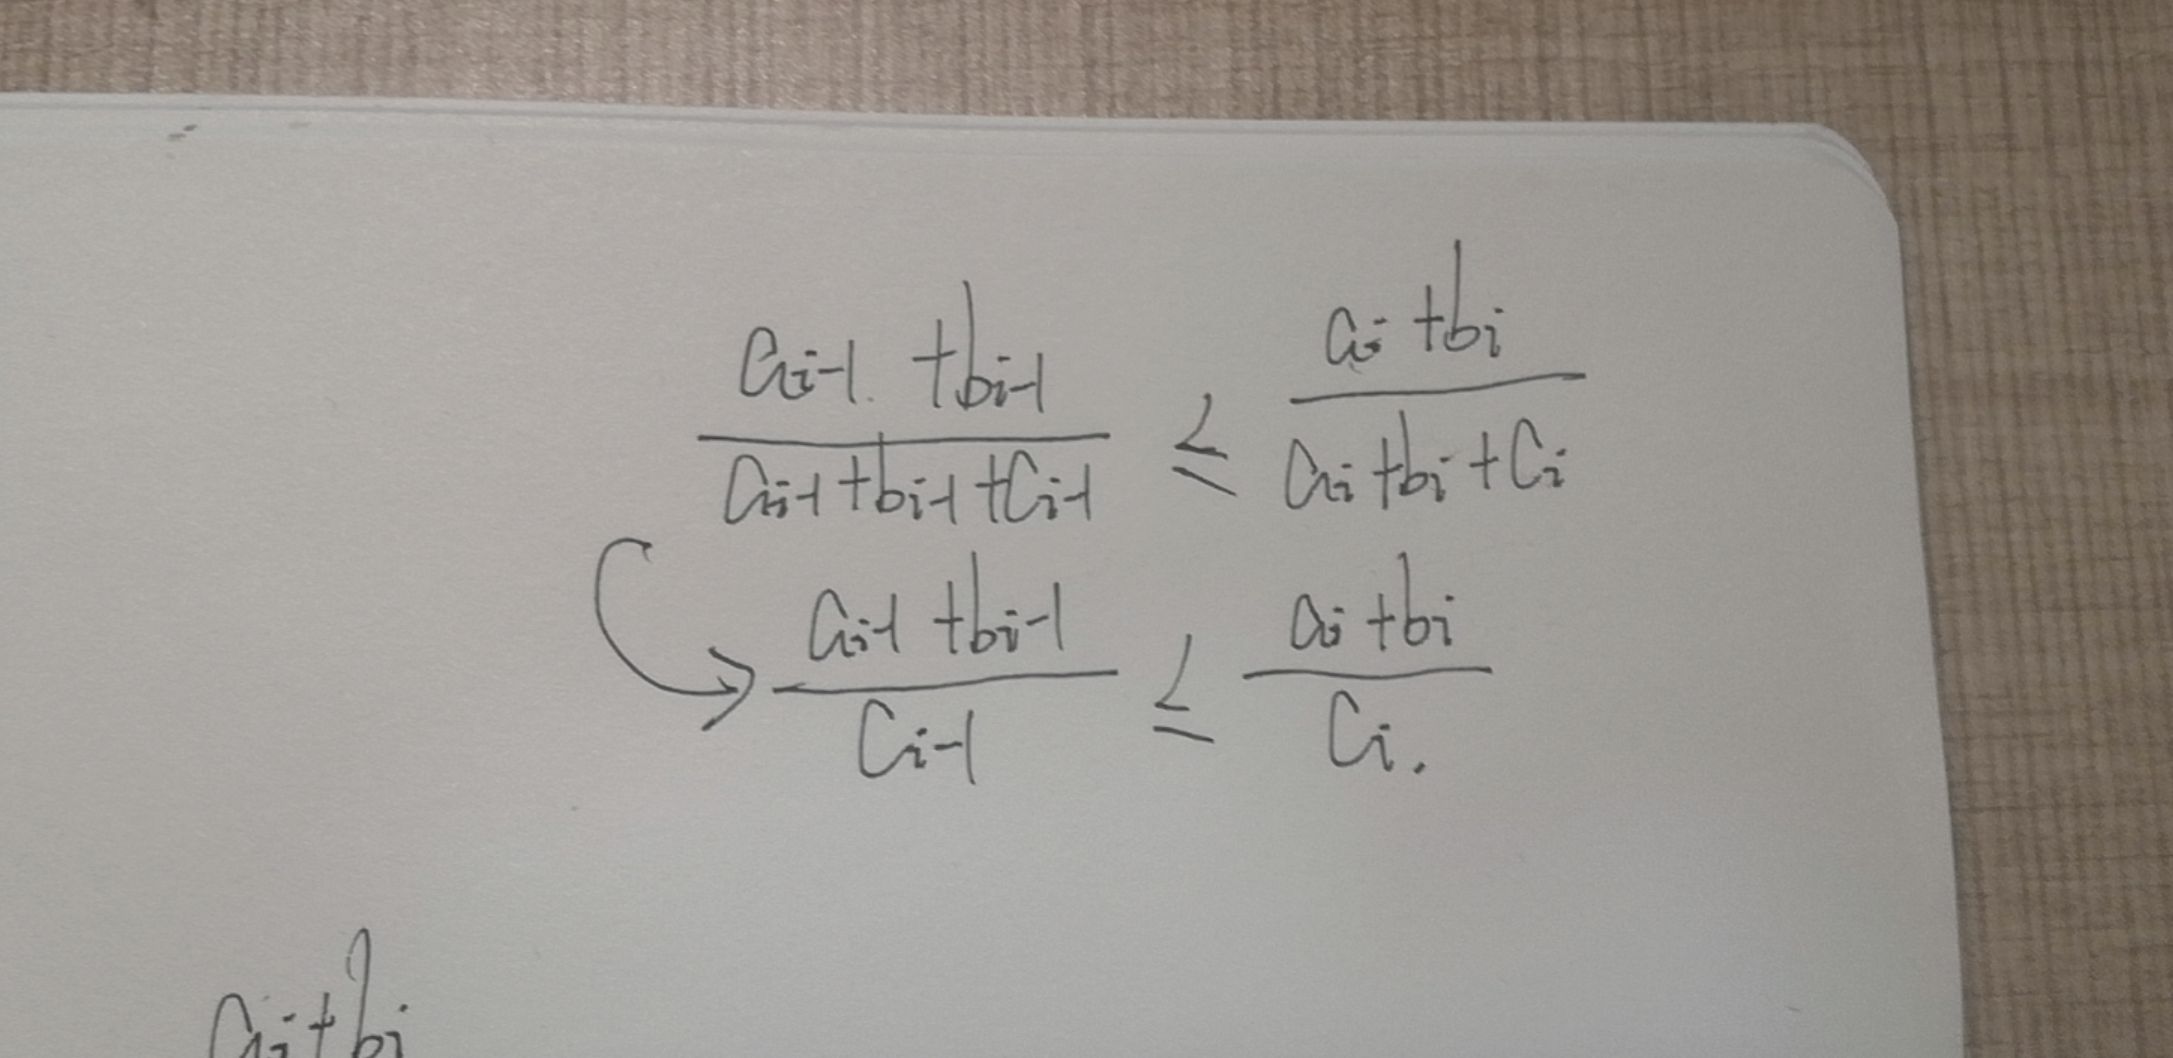 \frac{a_{i-1} + b_{i-1}}{a_{i-1} + b_{i-1} + c_{i-1}} \leq \frac{a_i + b_i}{a_i + b_i + c_i}
\frac{a_{i-1} + b_{i-1}}{c_{i-1}} \leq \frac{a_i + b_i}{c_i}.
a_i + b_i